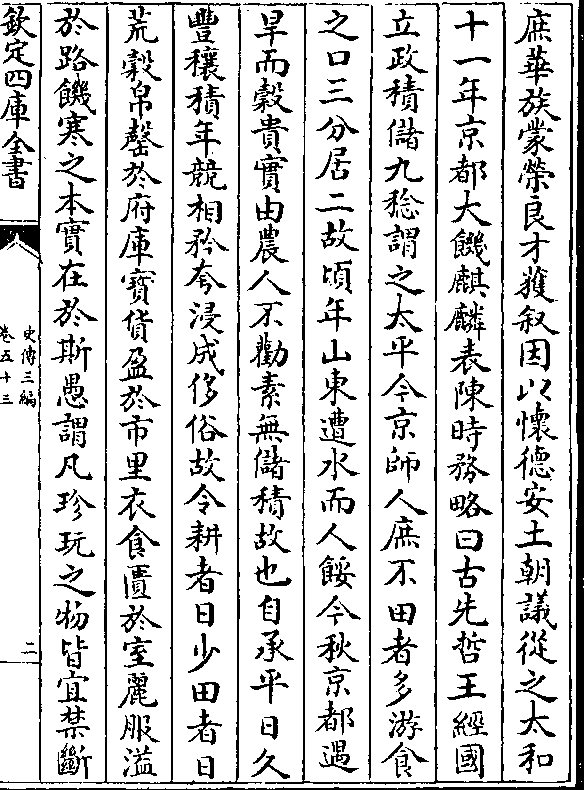 庶華族蒙榮良才獲叙因以懷德安土朝議從之太和
十一年京都大饑麒麟表陳時務略曰古先哲王經國
立政積儲九稔謂之太平今京師人庶不田者多游食
之口三分居二故頃年山東遭水而人餒今秋京都遇
旱而穀貴實由農人不勸素無儲積故也自承平日久
豐穰積年競相矜夸浸成侈俗故令耕者日少田者日
荒穀帛罄於府庫寶貨盈於市里衣食匱於室麗服溢
於路饑寒之本實在於斯愚謂凡珍玩之物皆宜禁斷
欽定四庫全書
史傳三編
卷五十三
二